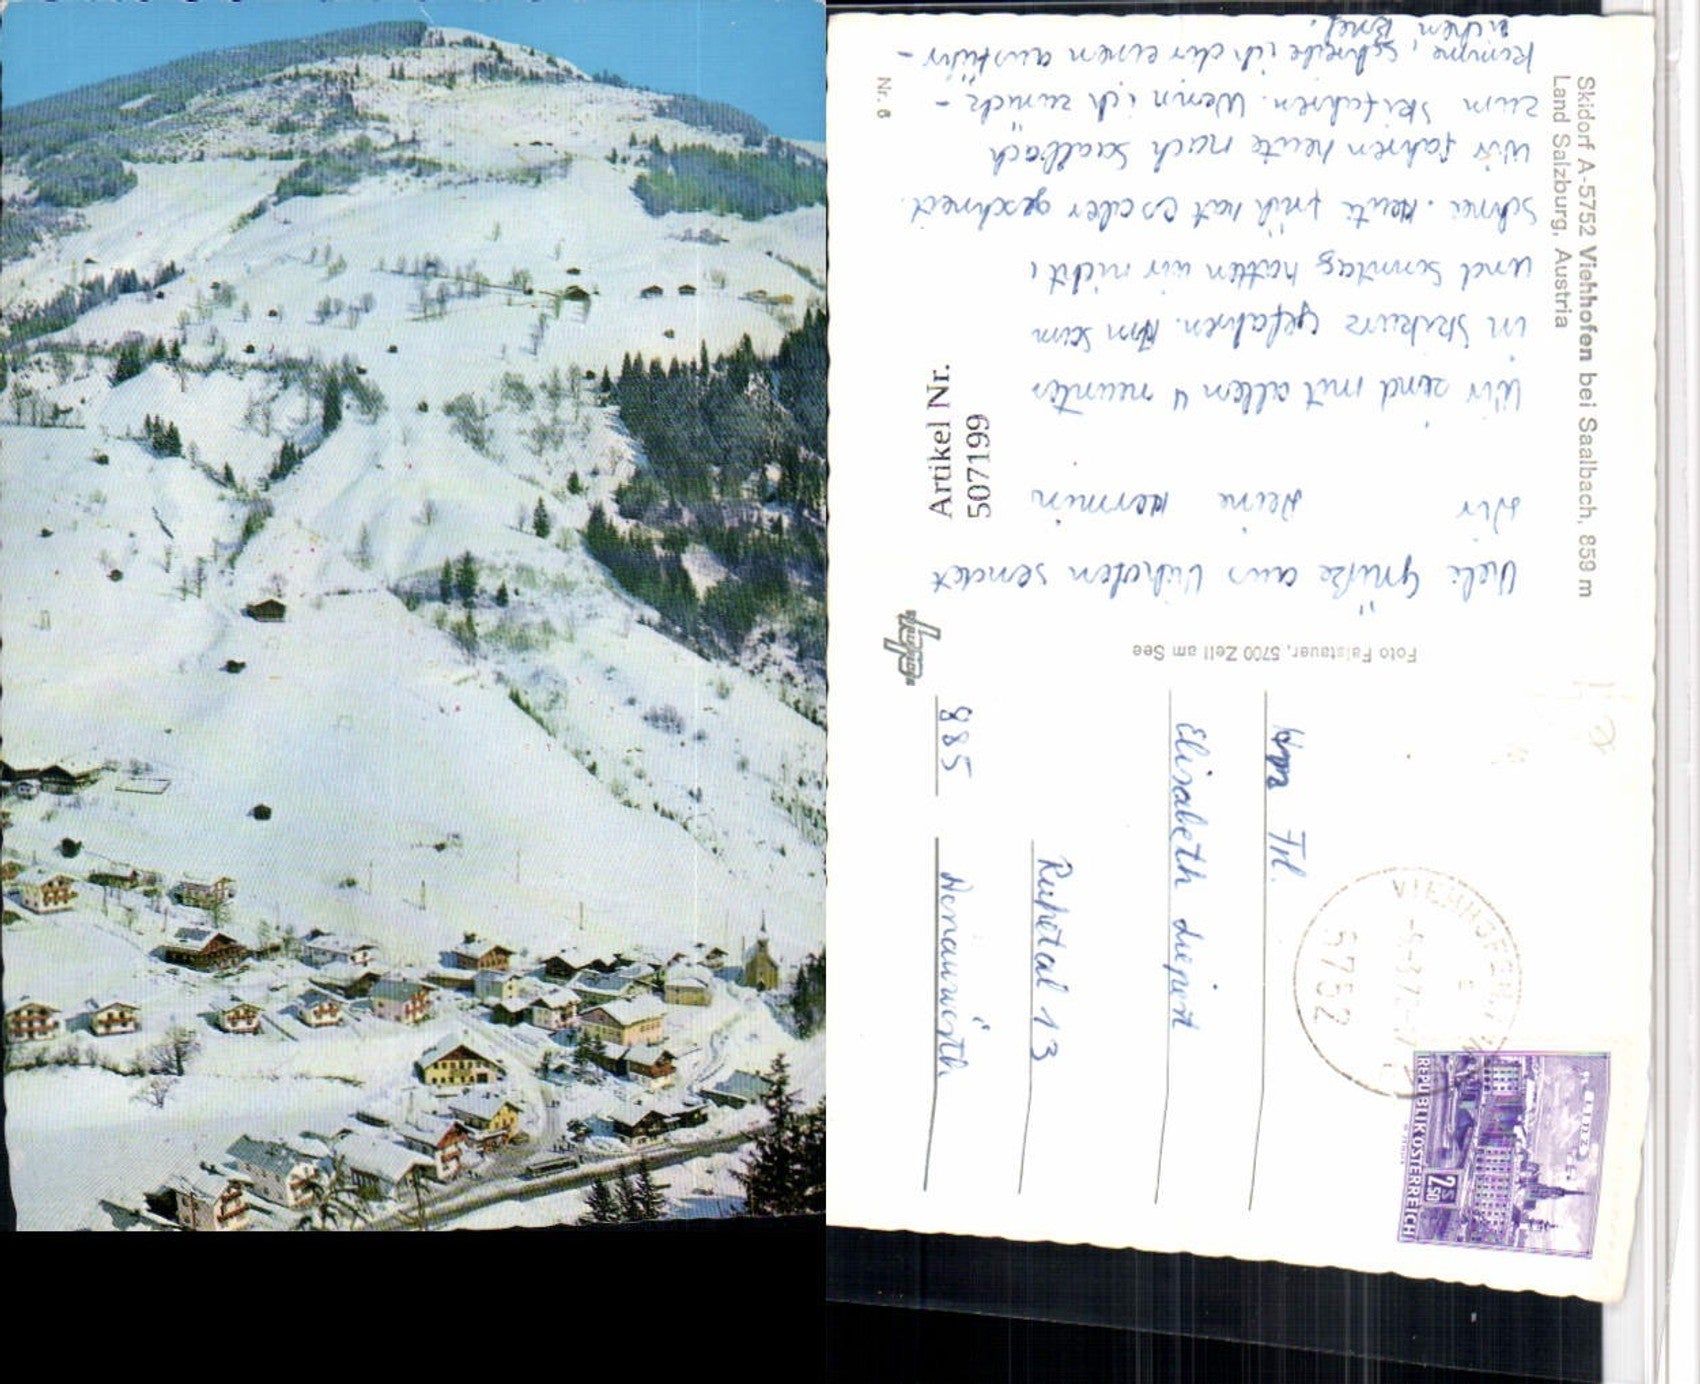 Skidorf A-5752 Viehhofen bei Saalbach, 859 m
Land Salzburg, Austria
Nr. 6
Viele Grüße aus Viehofen sendet
dir Deine Hermin
Wir sind mit allen 4 neunten
in Skikurs gefahren. Am Sam
und Sonntag hatten wir nicht
Schnee. Heute früh hat es aber geschneit.
Wir fahren heute nach Saalbach
zum Skifahren. Wenn ich zurück-
komme, schreibe ich dir einen ausführ-
lichen Brief.
Artikel Nr.
5071199
Foto Faistauer, 5700 Zell am See
Frl.
Elisabeth Liepert
Rupetal 13
885 Donauwörth
VIEHHOFEN
5752
REPUBLIK ÖSTERREICH
LINZ
S
2.50